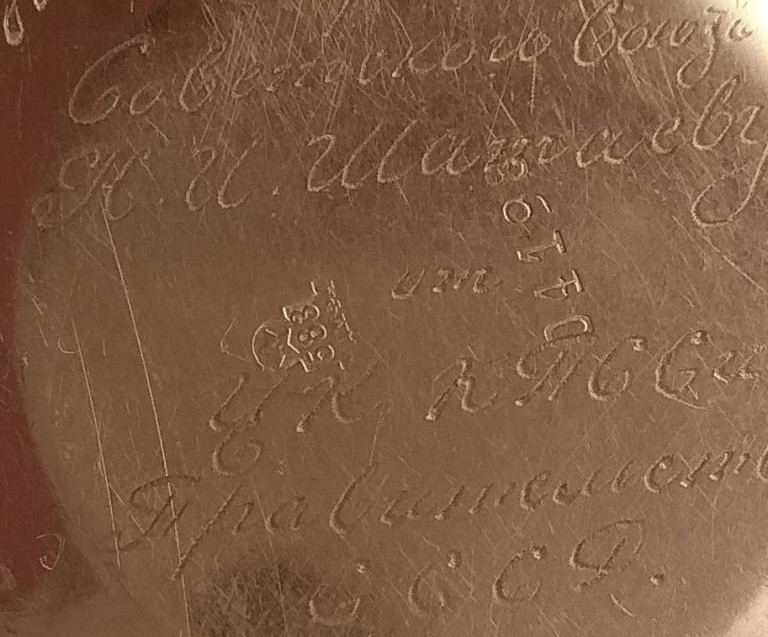 Советского Союза
Н И. Шатаеву
от
ЦК, КПСС и
Правительст
СССР.
583